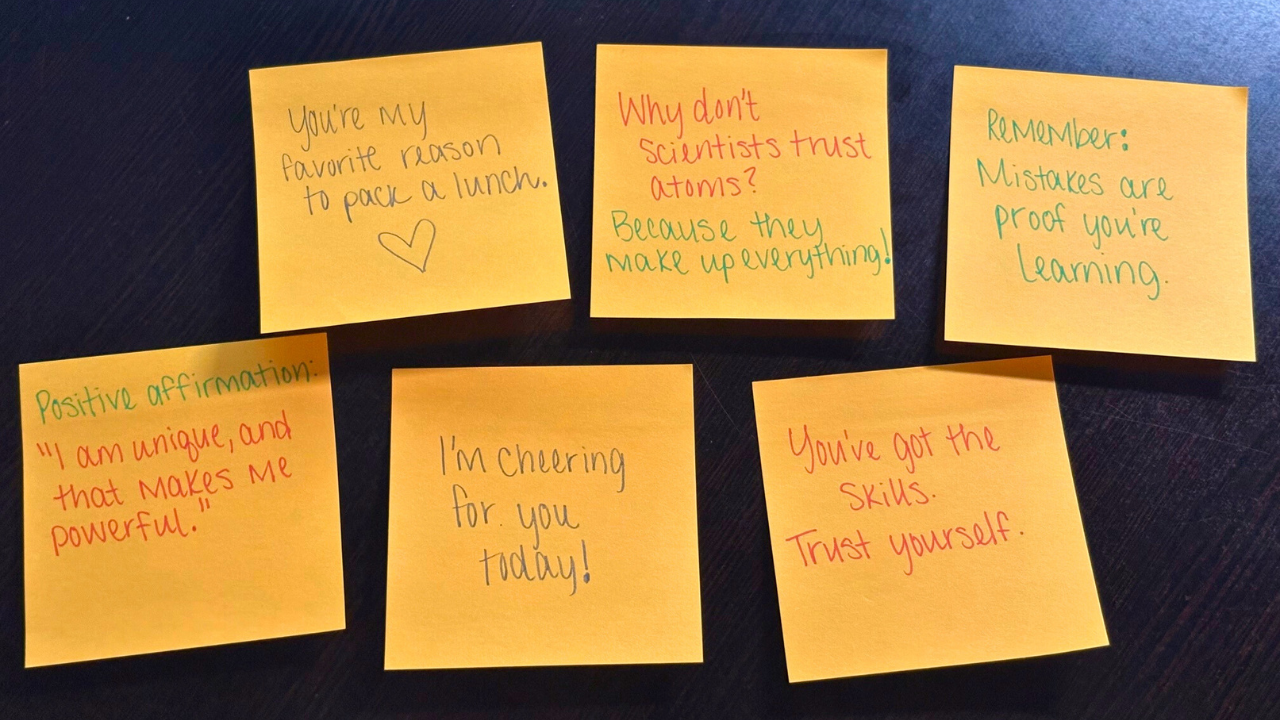 You're my
favorite reason
to pack a lunch.
Why don't
scientists trust
atoms?
Because they
make up everything!
Remember:
Mistakes are
proof you're
learning.
Positive affirmation:
"I am unique, and
that makes me
powerful."
I'm cheering
for you
today!
You've got the
skills.
Trust yourself.